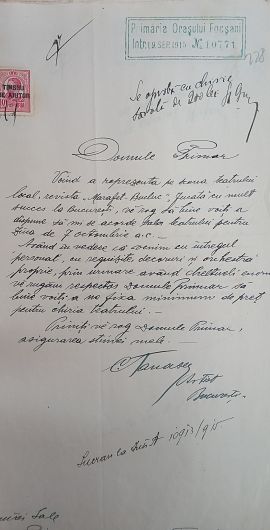 Primăria Orașului Focșani
Intr. 19 SEP. 1915 № 10771
TIMBRU
DE AJUTOR
Se aprobă cu chiria
de 200 lei
Domnule Primar
Voind a reprezenta pe scena teatrului
local, revista "Marafet-Bucluc", jucată cu mult
succes la București, vă rog să bine voiți a
dispune să mi se acorde sala teatrului pentru
Ziua de 7 octombrie a.c. —
Având în vedere că venim cu întregul
personal, cu requisite, decoruri și orchestră
proprie, prin urmare având cheltueli enorme
vă rugăm respectos Domnule Primar să
bine voiți a ne fixa minimum de preț
pentru chiria teatrului. —
Primiți vă rog Domnule Primar,
asigurarea stimei mele. —
C Tanase
Artist
București
Lucrat la 10913/915